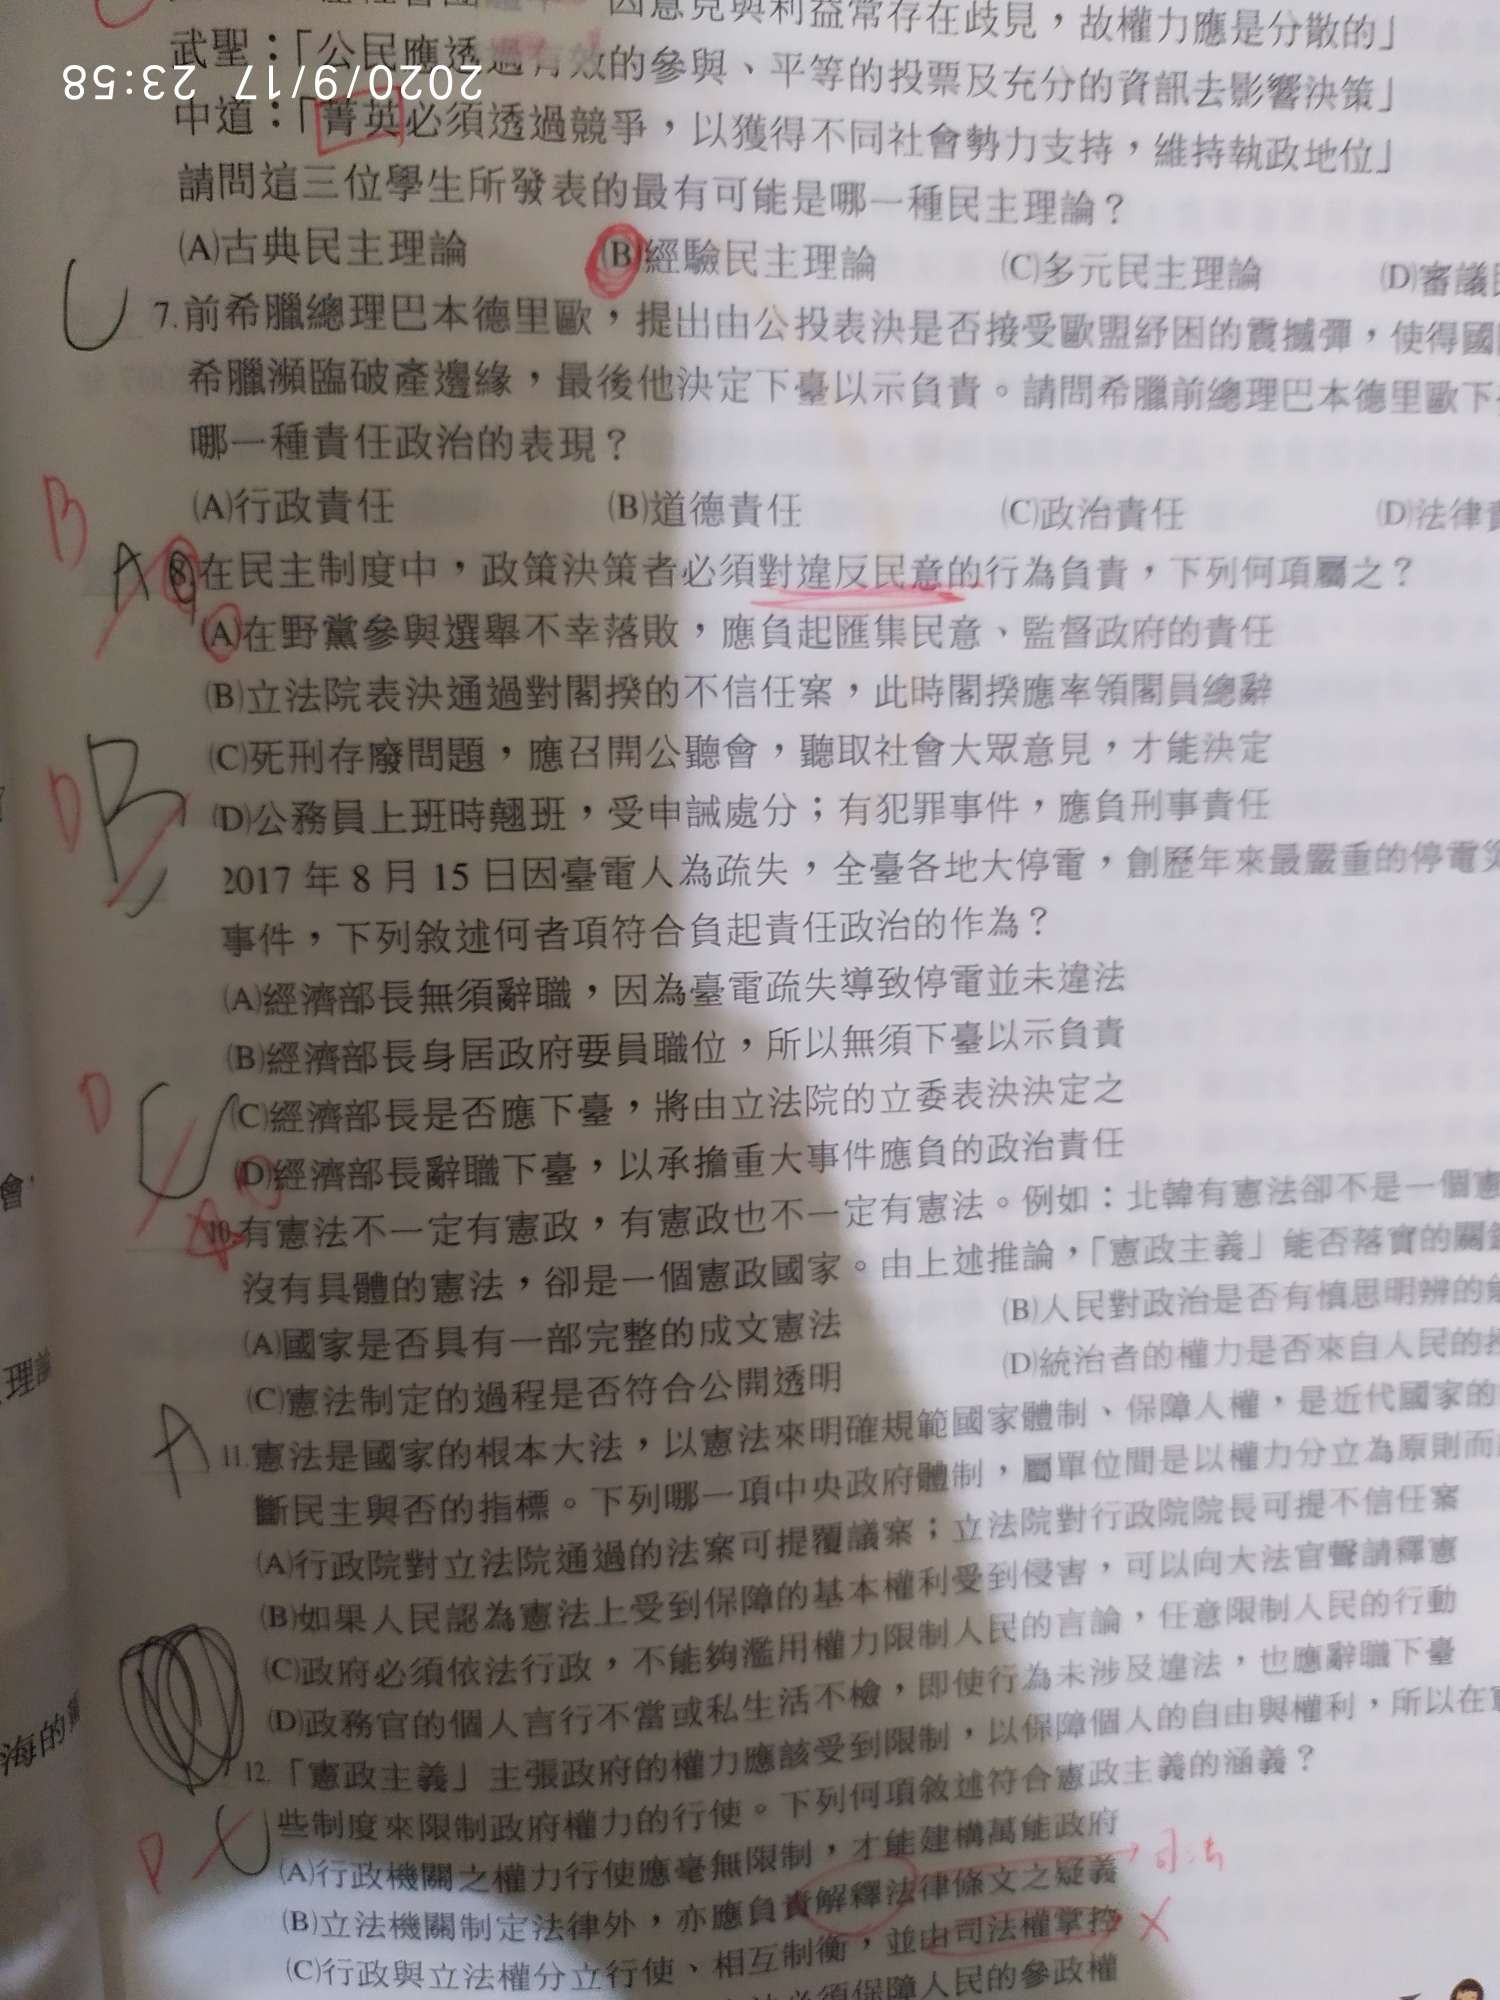 因意見與利益常存在歧見，故權力應是分散的」
武聖：「公民應透過有效的參與、平等的投票及充分的資訊去影響決策」
2020/9/17 23:58
中道：「菁英必須透過競爭，以獲得不同社會勢力支持，維持執政地位」
請問這三位學生所發表的最有可能是哪一種民主理論？
(A)古典民主理論 (B)經驗民主理論 (C)多元民主理論 (D)審議
C 7.前希臘總理巴本德里歐，提出由公投表決是否接受歐盟紓困的震撼彈，使得國
希臘瀕臨破產邊緣，最後他決定下臺以示負責。請問希臘前總理巴本德里歐下
哪一種責任政治的表現？
(A)行政責任 (B)道德責任 (C)政治責任 (D)法律
B
A 8.在民主制度中，政策決策者必須對違反民意的行為負責，下列何項屬之？
(A)在野黨參與選舉不幸落敗，應負起匯集民意、監督政府的責任
(B)立法院表決通過對閣揆的不信任案，此時閣揆應率領閣員總辭
(C)死刑存廢問題，應召開公聽會，聽取社會大眾意見，才能決定
D B (D)公務員上班時翹班，受申誡處分；有犯罪事件，應負刑事責任
2017 年 8 月 15 日因臺電人為疏失，全臺各地大停電，創歷年來最嚴重的停電
事件，下列敘述何者項符合負起責任政治的作為？
(A)經濟部長無須辭職，因為臺電疏失導致停電並未違法
(B)經濟部長身居政府要員職位，所以無須下臺以示負責
D C (C)經濟部長是否應下臺，將由立法院的立委表決決定之
(D)經濟部長辭職下臺，以承擔重大事件應負的政治責任
10.有憲法不一定有憲政，有憲政也不一定有憲法。例如：北韓有憲法卻不是一個
沒有具體的憲法，卻是一個憲政國家。由上述推論，「憲政主義」能否落實的關
(A)國家是否具有一部完整的成文憲法 (B)人民對政治是否有慎思明辨的
(C)憲法制定的過程是否符合公開透明 (D)統治者的權力是否來自人民的
A 11.憲法是國家的根本大法，以憲法來明確規範國家體制、保障人權，是近代國家的
斷民主與否的指標。下列哪一項中央政府體制，屬單位間是以權力分立為原則而
(A)行政院對立法院通過的法案可提覆議案；立法院對行政院院長可提不信任案
(B)如果人民認為憲法上受到保障的基本權利受到侵害，可以向大法官聲請釋憲
(C)政府必須依法行政，不能夠濫用權力限制人民的言論，任意限制人民的行動
(D)政務官的個人言行不當或私生活不檢，即使行為未涉及違法，也應辭職下臺
12.「憲政主義」主張政府的權力應該受到限制，以保障個人的自由與權利，所以在
D C 些制度來限制政府權力的行使。下列何項敘述符合憲政主義的涵義？
(A)行政機關之權力行使應毫無限制，才能建構萬能政府
(B)立法機關制定法律外，亦應負責解釋法律條文之疑義 → 司法
(C)行政與立法權分立行使、相互制衡，並由司法權掌控 X
必須保障人民的參政權
會
理論
海的